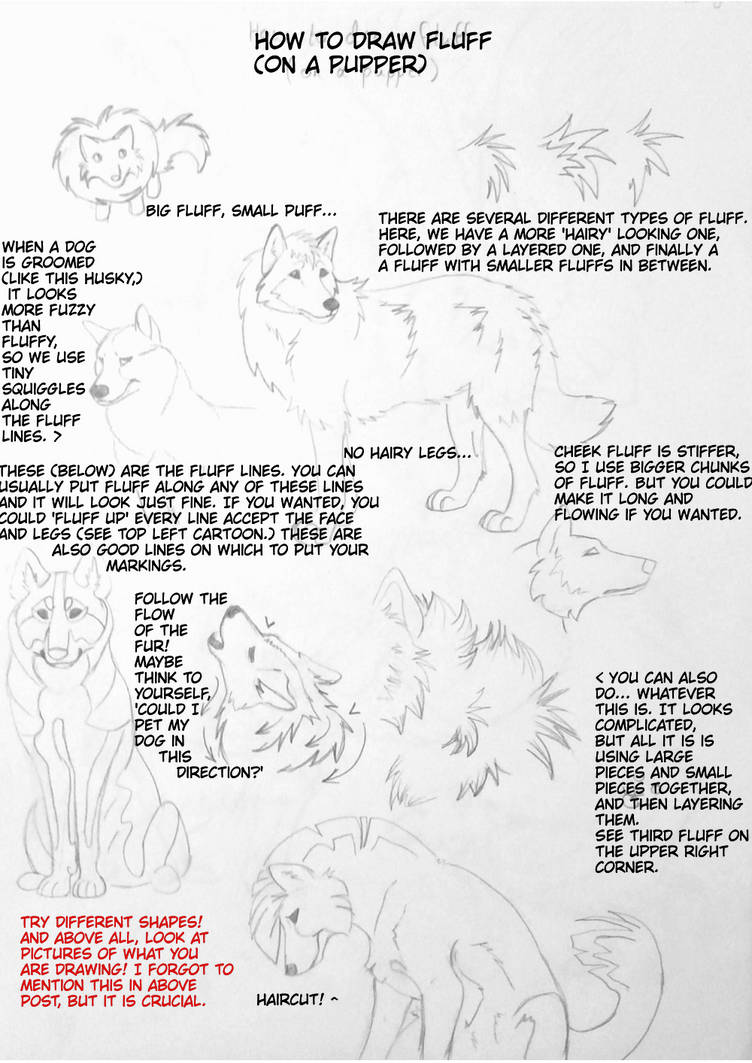 HOW TO DRAW FLUFF
(ON A PUPPER)
BIG FLUFF, SMALL PUFF...
THERE ARE SEVERAL DIFFERENT TYPES OF FLUFF.
HERE, WE HAVE A MORE 'HAIRY' LOOKING ONE,
FOLLOWED BY A LAYERED ONE, AND FINALLY A
A FLUFF WITH SMALLER FLUFFS IN BETWEEN.
WHEN A DOG
IS GROOMED
(LIKE THIS HUSKY,)
IT LOOKS
MORE FUZZY
THAN
FLUFFY,
SO WE USE
TINY
SQUIGGLES
ALONG
THE FLUFF
LINES. >
NO HAIRY LEGS...
CHEEK FLUFF IS STIFFER,
SO I USE BIGGER CHUNKS
OF FLUFF. BUT YOU COULD
MAKE IT LONG AND
FLOWING IF YOU WANTED.
THESE (BELOW) ARE THE FLUFF LINES. YOU CAN
USUALLY PUT FLUFF ALONG ANY OF THESE LINES
AND IT WILL LOOK JUST FINE. IF YOU WANTED, YOU
COULD 'FLUFF UP' EVERY LINE ACCEPT THE FACE
AND LEGS (SEE TOP LEFT CARTOON.) THESE ARE
ALSO GOOD LINES ON WHICH TO PUT YOUR
MARKINGS.
FOLLOW THE
FLOW
OF THE
FUR!
MAYBE
THINK TO
YOURSELF,
'COULD I
PET MY
DOG IN
THIS
DIRECTION?'
< YOU CAN ALSO
DO... WHATEVER
THIS IS. IT LOOKS
COMPLICATED,
BUT ALL IT IS IS
USING LARGE
PIECES AND SMALL
PIECES TOGETHER,
AND THEN LAYERING
THEM.
SEE THIRD FLUFF ON
THE UPPER RIGHT
CORNER.
TRY DIFFERENT SHAPES!
AND ABOVE ALL, LOOK AT
PICTURES OF WHAT YOU
ARE DRAWING! I FORGOT TO
MENTION THIS IN ABOVE
POST, BUT IT IS CRUCIAL.
HAIRCUT! ^